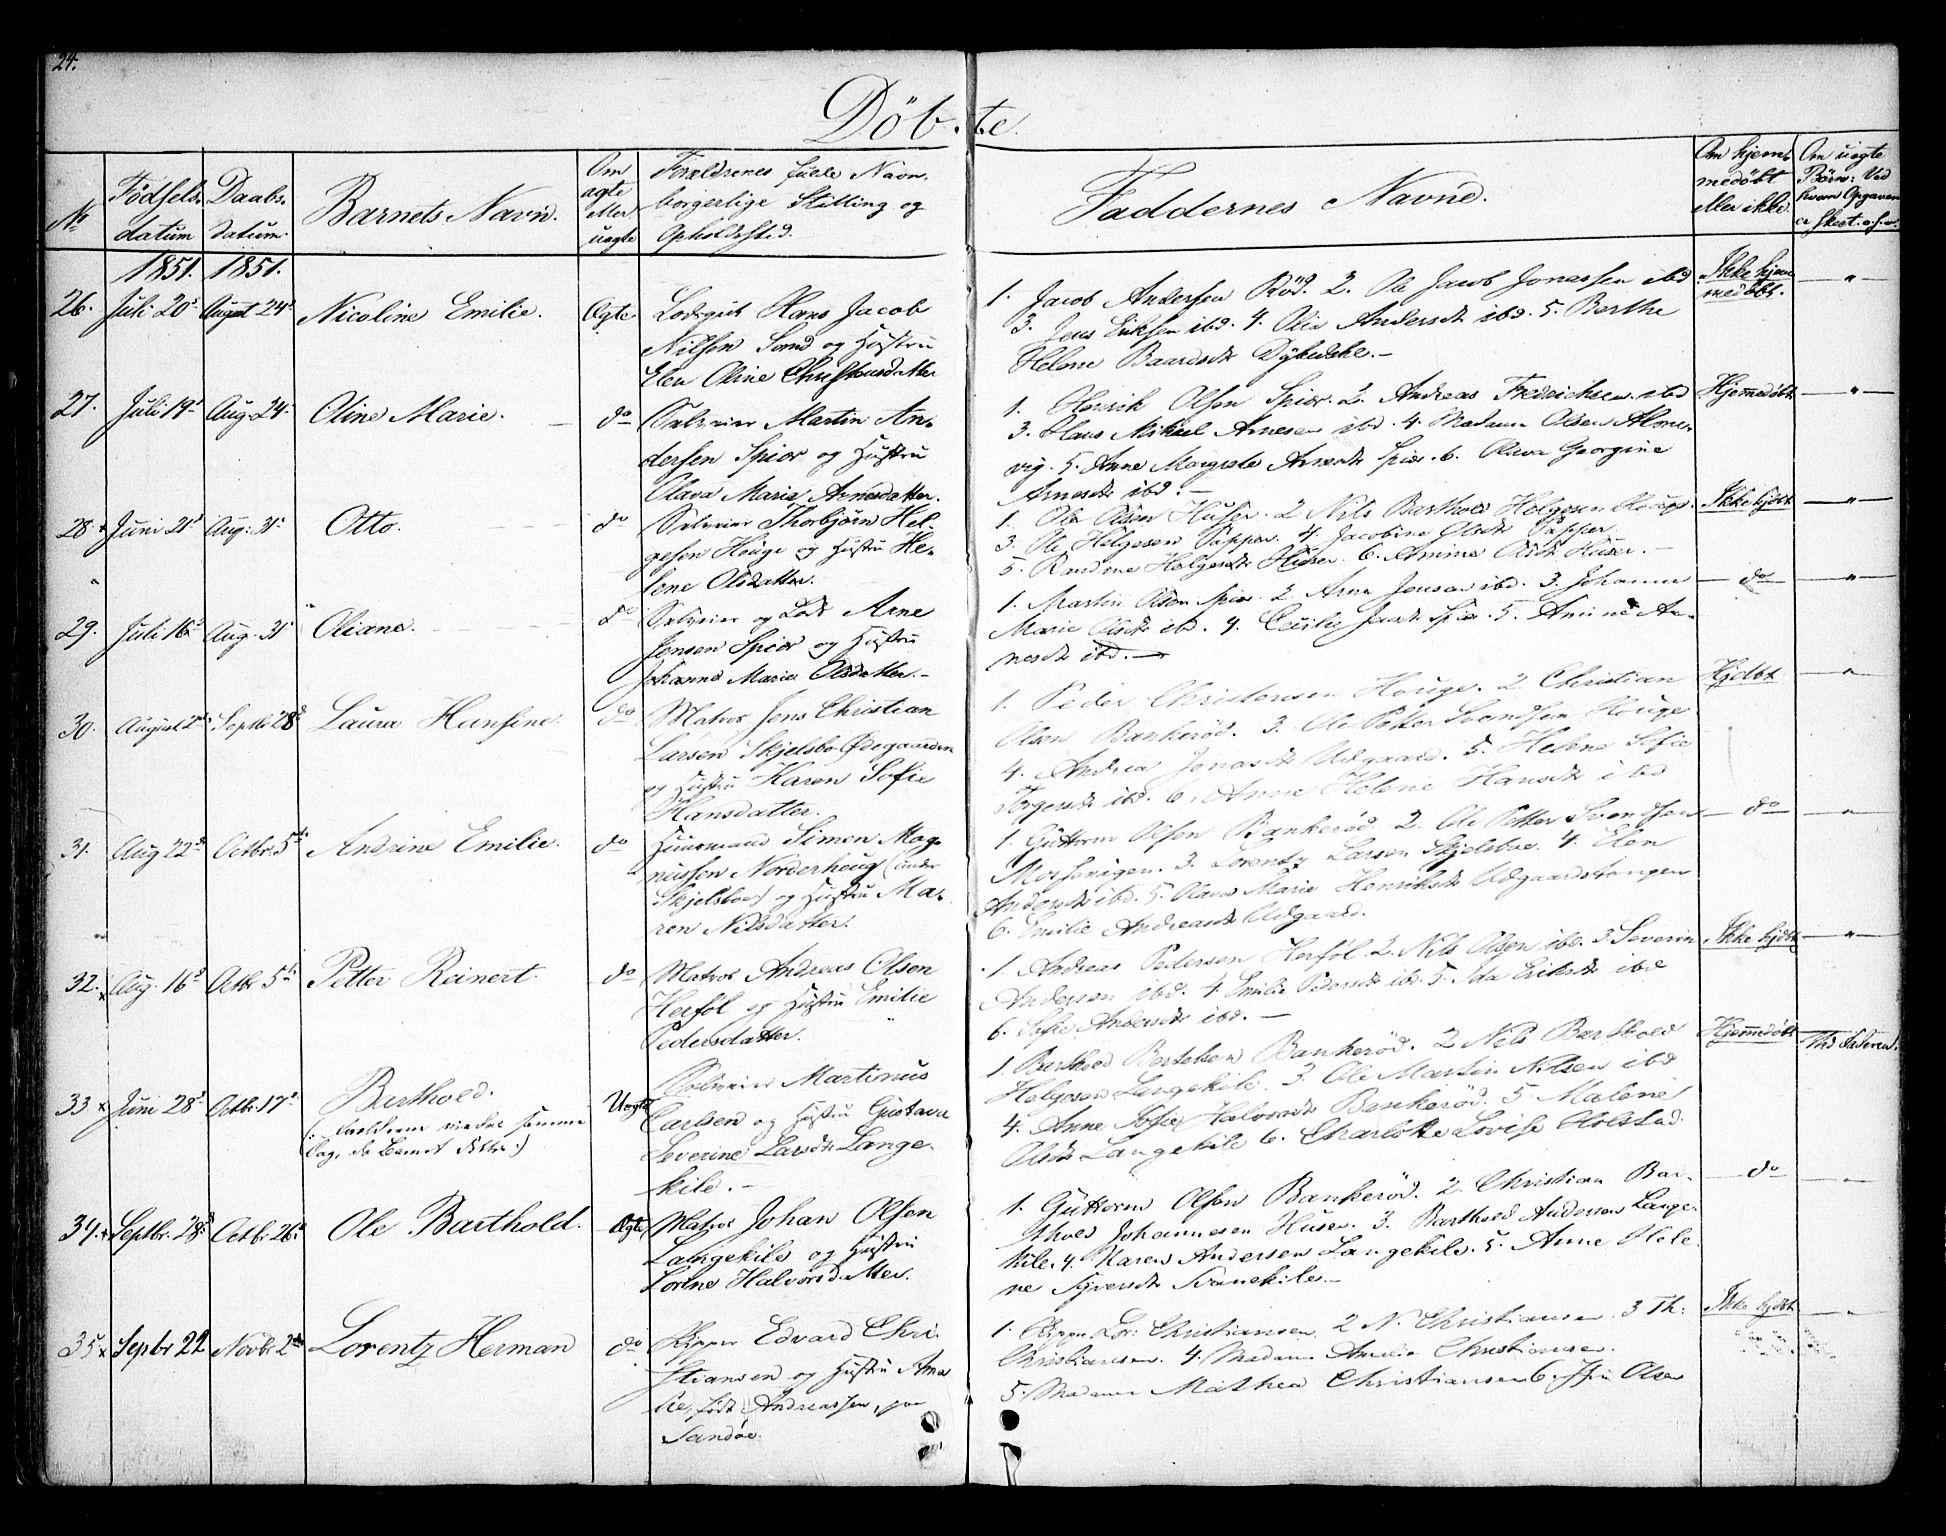 24.
Döb-te.
No
Födsels-
datum
Daabs-
datum.
Barnets Navn.
Om
ægte
eller
uægte
Forældrenes fulle Navn,
borgerlige Stilling og
Opholdssted.
Faddernes Navne.
Om hjem-
medöbt
eller ikke.
Om uægte
Börn: Ved
hvem Opgaven
er skeet. o.s.v.
1851. 1851.
26. Juli 20d August 24d Nicoline Emilie. Ægte
Lodsgut Hans Jacob
Nilsen Sand og Hustru
Elen Oline Christensdatter
1. Jacob Andersen Röd. 2. Ole Jacob Jonassen ibd
3. Jens Eriksen ibd. 4. Olia Andersdtr ibd. 5. Berthe
Helene Baardsdtr Dykedske.—
Ikke hjem-
medöbt. "
27. Juli 19d Aug. 24d Oline Marie. do
Selveier Martin An-
dersen Spiør og Hustru
Olava Maria Arnesdatter.
1. Henrik Olsen Spiør. 2. Andreas Fredrichsen ibd
3. Hans Mikael Arnesen ibd. 4. Madame Olsen Alme-
vig. 5. Anne Margrete Arnesdtr Spiør. 6. Olava Georgine
Arnesdtr ibd.—
Hjemmedöbt "
28. x Juni 21d Aug: 31d Otto. do
Selveier Thorbjörn Hel-
gesen Houge og Hustru He-
lene Olsdatter.
1. Ole Olsen Huser. 2 Nils Barthold Helgesen Houge.
3. Ole Helgesen Papper. 4. Jacobine Olsdtr Papper.
5. Randine Helgesdtr Huser. 6. Amine Olsdtr Huser.—
Ikke hjdbt "
29. Juli 16d Aug. 31d Oliane. do
Selveier og Lods Arne
Jensen Spiør og Hustru
Johanne Marie Olsdatter.—
1. Martin Olsen Spiør. 2 Arne Jensen ibd. 3. Johanne
Marie Olsdtr ibd. 4. Cecilie Jansdtr Spiør. 5. Amine Ar-
nesdtr ibd.—
do "
30. August 2d Septbr 28d Laura Hansine. do
Matros Jens Christian
Larsen Skjelsbo-Ødegaarden
og Hustru Karen Sofie
Hansdatter.
1. Peder Christensen Houge. 2 Christian
Olsen Bankeröd. 3. Ole Petter Svendsen Houge.
4. Andrea Jonasdtr Udgaard. 5. Helene Sofie
Torgersdtr ibd. 6. Anne Helene Hansdtr ibd
Hjdbt "
31. Aug 22d Octbr. 5te Andrine Emilie. do
Huusmand Simen Mag-
nussen Norderhoug (under
Skjelsboe) og Hustru Ma-
ren Nilsdatter.
1. Guttorm Olsen Bankeröd 2. Ole Petter Svendsen
Mossevigen. 3. Lorentz Larsen Skjelsboe. 4. Elen
Andersdtr ibd. 5. Olava Marie Henriksdtr Udgaardstangen
6. Emilie Andreasdtr Udgaard.
do "
32. x Aug. 16d Octbr 5te Petter Reinert. do
Matros Andreas Olsen
Herföl og Hustru Emilie
Pedersdatter.
1 Andreas Pedersen Herföl. 2. Nils Olsen ibd. 3. Severin
Andersen ibd. 4. Emilie Pedersdtr ibd. 5. Ida Eriksdtr ibd
6. Sofie Andersdtr ibd.—
Ikke hjdbt "
33 x Juni 28d Octbr. 17d Barthold.
(: Forældrene viedes samme
Dag, da Barnet döbtes:)
Uægte
Selveier Martinus
Carlsen og Hustru Gustava
Severine Larsdtr Lange-
kile.—
1. Barthold Bertelsen Bankeröd. 2 Nils Barthold
Helgesen Langekile. 3. Ole Martin Nilsen ibd
4. Anne Sofie Halvorsdtr Bankeröd. 5. Malene
Olsdtr Langekile 6. Charlotte Lovise Holstad.
Hjemmedöbt Ved Faderen.
34. x Septbr. 28d Octbr. 26d Ole Barthold. Ægte
Matros Johan Olsen
Langekile og Hustru
Lorine Halvorsdatter.
1. Guttorm Olsen Bankeröd. 2 Christian Bar-
thold Johannesen Huser. 3. Barthold Andersen Lange-
kile. 4. Karen Andersen Langekile. 5. Anne Hele-
ne Syversdtr Svanekile.—
do "
35 x Septbr 22 Novbr 2den Lorentz Herman do
Skipper Edvard Chri-
stiansen og Hustru Ama-
lie, född Andreassen, paa
Sandöe.
1. Skipper Lor: Christiansen. 2 N. Christiansen. 3 Th:
Christiansen. 4. Madame Amalie Christiansen.
5. Madame Mathea Christiansen 6. Olsen
Ikke hjdbt "